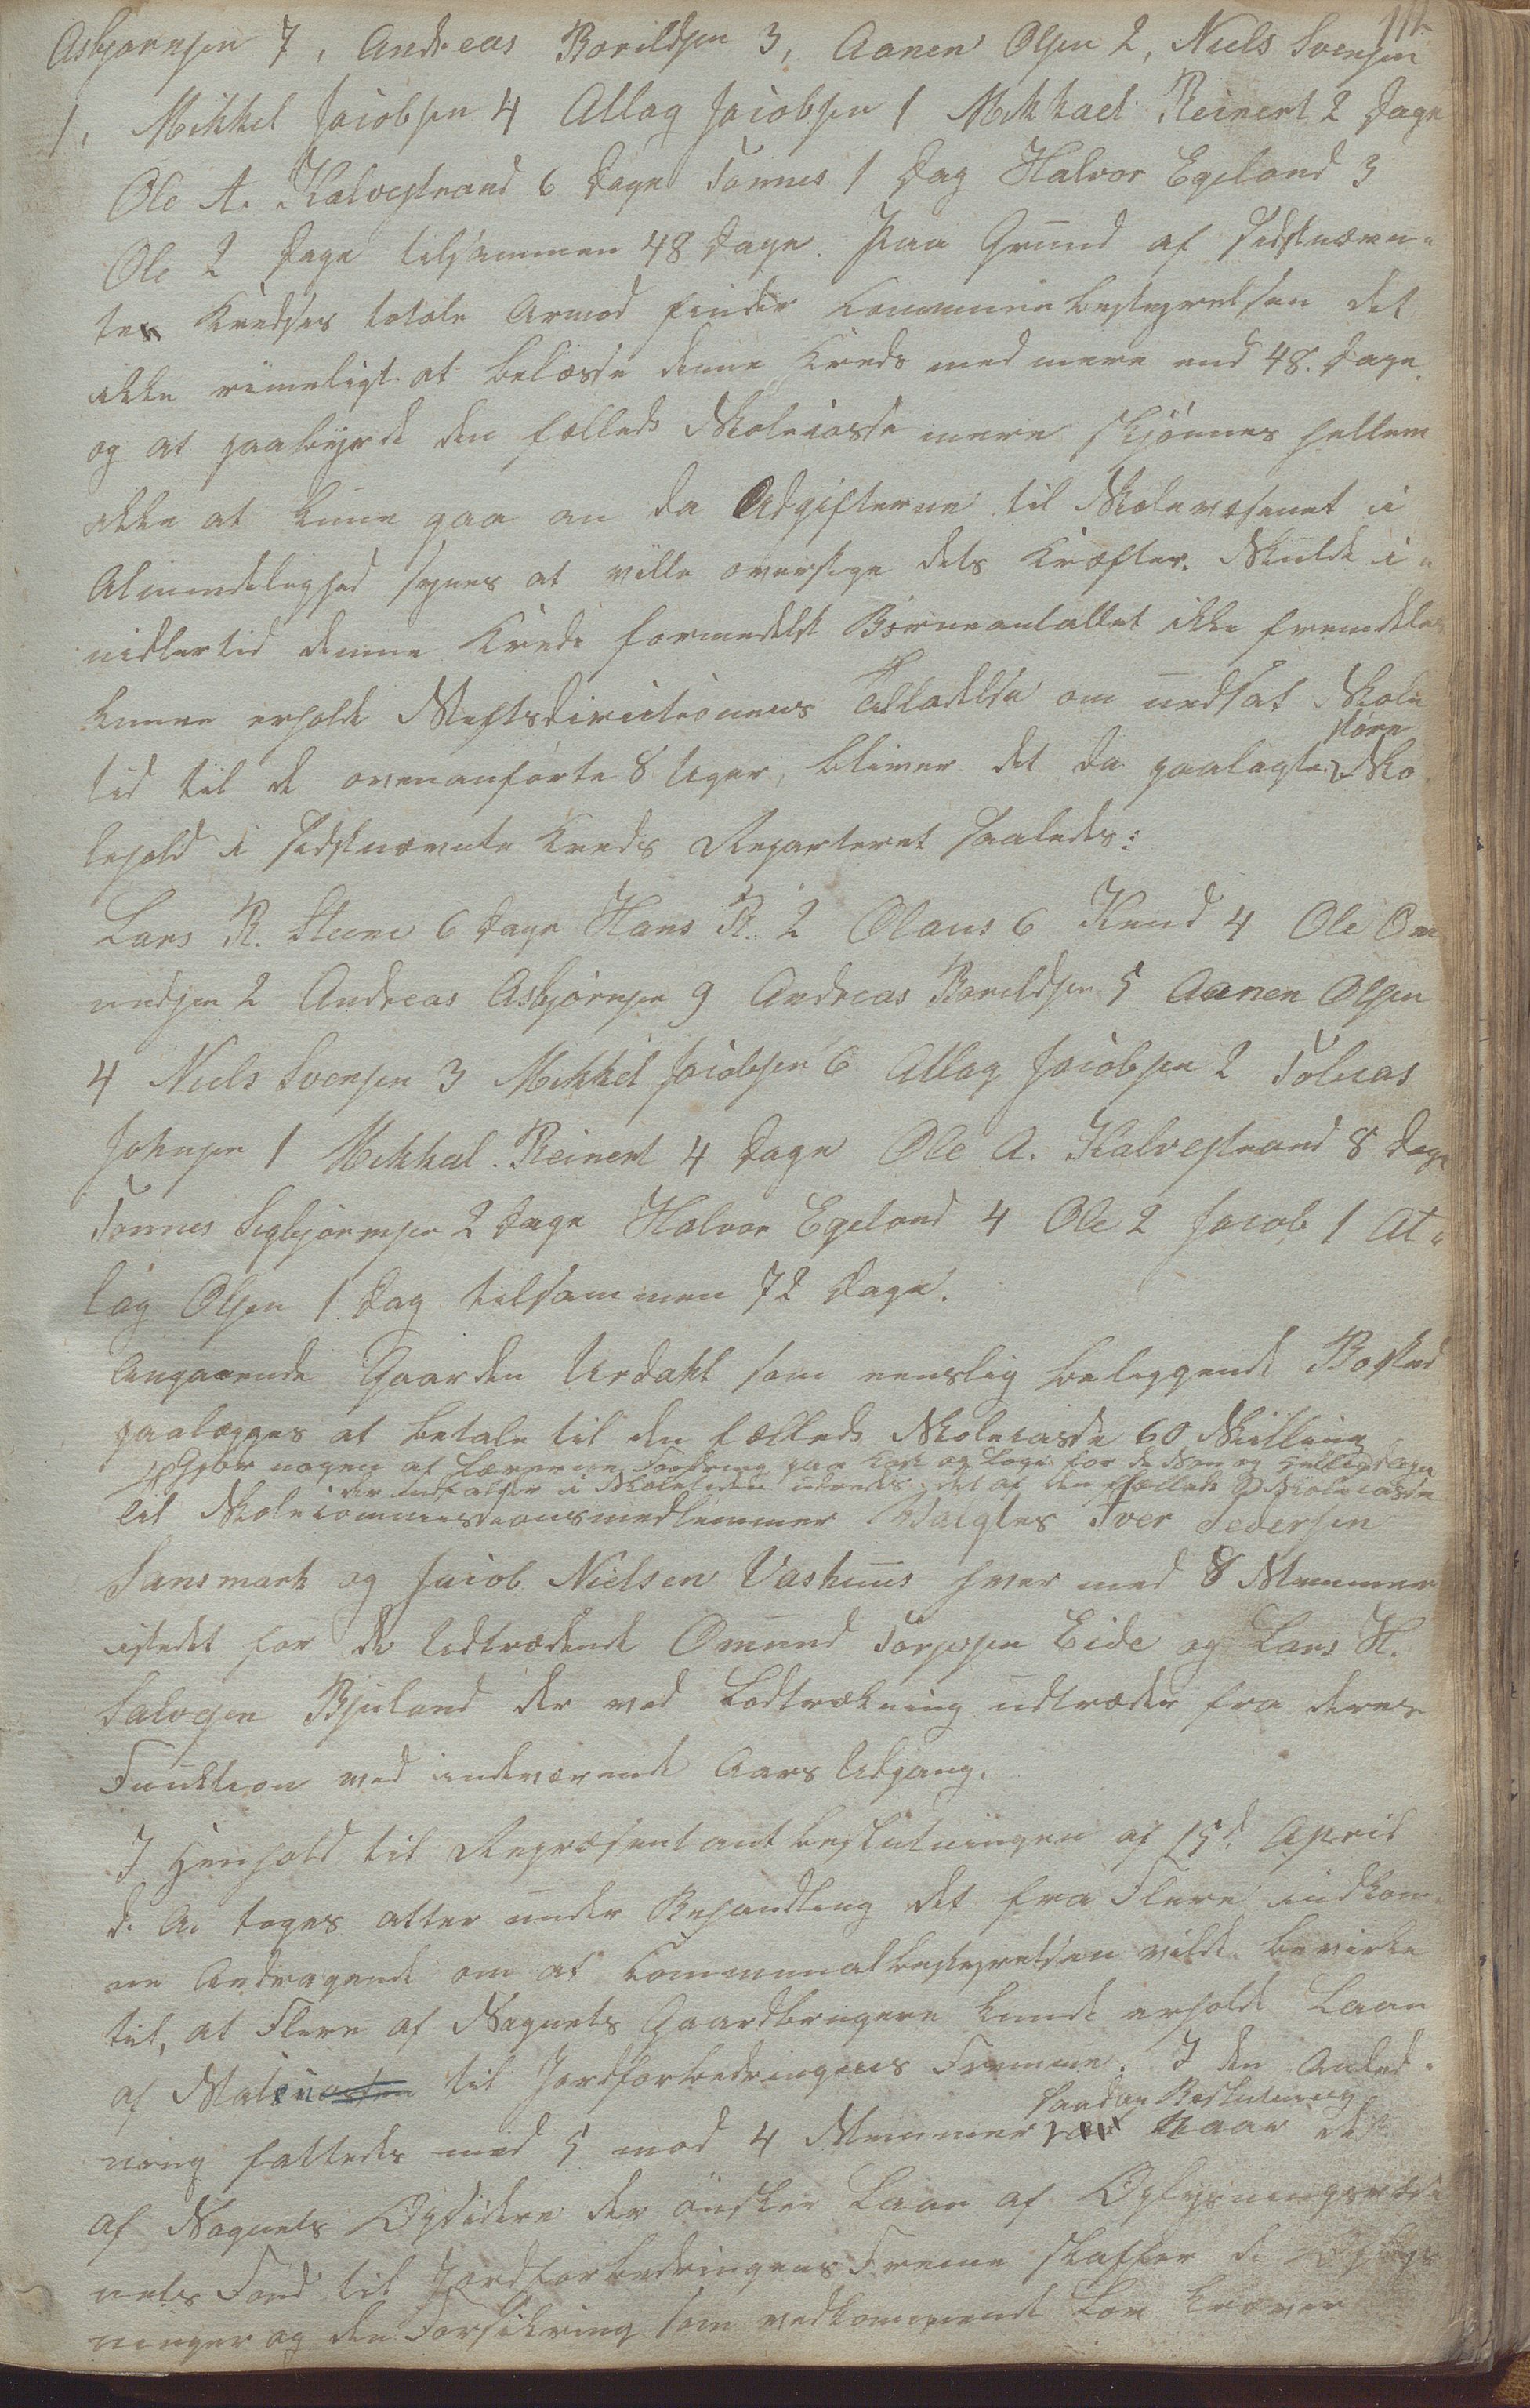 111
Asbjørnsen 7, Andreas Borildsen 3, Aanen Olsen 2, Niels Svensen
1, Mikkel Jacobsen 4 Atlag Jacobsen 1 Mikkael Reinert 2 Dage
Ole A. Kalvestrand 6 Dage Tønnes 1 Dag Halvor Egeland 3
Ole 2 Dage tilsammen 48 Dage. Paa Grund af sidstnævn-
te Kredses totale Armod finder Communebestyrelsen det
ikke rimeligt at belæsse denne Kreds med mere end 48. Dage
og at paabyrde den fælleds Skolecasse mere skjønnes hellem
ikke at kune gaa an da Udgifterne til Skolevæsenet i
Almindelighed synes at ville overstige dets Kræfter. Skulde i-
midlertid denne Kreds formedelst Børneantallet ikke fremdeles
kunne erholde Stiftsdirectionens Tilladelse om nedsat Skole
tid til de ovenanførte 8 Uger, bliver det da paalagte større Sko
lehold i sidstnævnte Kreds Reparteret saaledes:
Lars R. Steene 6 Dage Hans R. 2 Olaus 6 Knud 4 Ole Om
undsen 2 Andreas Asbjørnsen 9 Andreas Borildsen 5 Aanen Olsen
4 Niels Svensen 3 Mikkel Jacobsen 6 Atlag Jacobsen 2 Tobias
Johnsen 1 Mikkael Reinert 4 Dage Ole A. Kalvestrand 8 Dage
Tønnes Sigbjørnsen 2 Dage Halvor Egeland 4 Ole 2 Jacob 1 At-
lag Olsen 1 Dag tilsammen 72 Dage.
Angaaende Gaarden Urdahl som eenslig beliggende Bosted
paalægges at betale til den fælleds Skolecasse 60 Skilling
Gjør nogen af Lærerne Fordring paa Kost og Logi for de Søn og Helligdage
der indfalder i Skoletiden udredes det af den fælleds Skolecasse
til Skolecommissionsmedlemmer Valgtes Iver Pedersen
Sansmark og Jacob Nielsen Vashuus hver med 8 Stemmer
istedet for de Udtrædende Omund Torjesen Eide og Lars H.
Salvesen Bjuland der ved Lodtrækning udtræder fra deres
Funktion ved indeværende Aars Udgang.
I Henhold til Repræsentantbeslutningen af 15d. April
d. A. toges atter under Behandling det fra Flere indkom-
ne Andragende om at Communalbestyrelsen vilde bevirke
til, at Flere af Sognets Gaardbrugere kunde erholde Laan
af Staten til Jordforbedringens Fremme. I den Anled-
ning fattedes med 5 mod 4 Stemmer saadan Beslutning naar de
af Sognets Opsidere der ønsker Laan af Oplysningsvæse
nets Fond til Jordforbedringens Freme skaffer de Oplys
ninger og den Forsikring som vedkommende Lov kræver